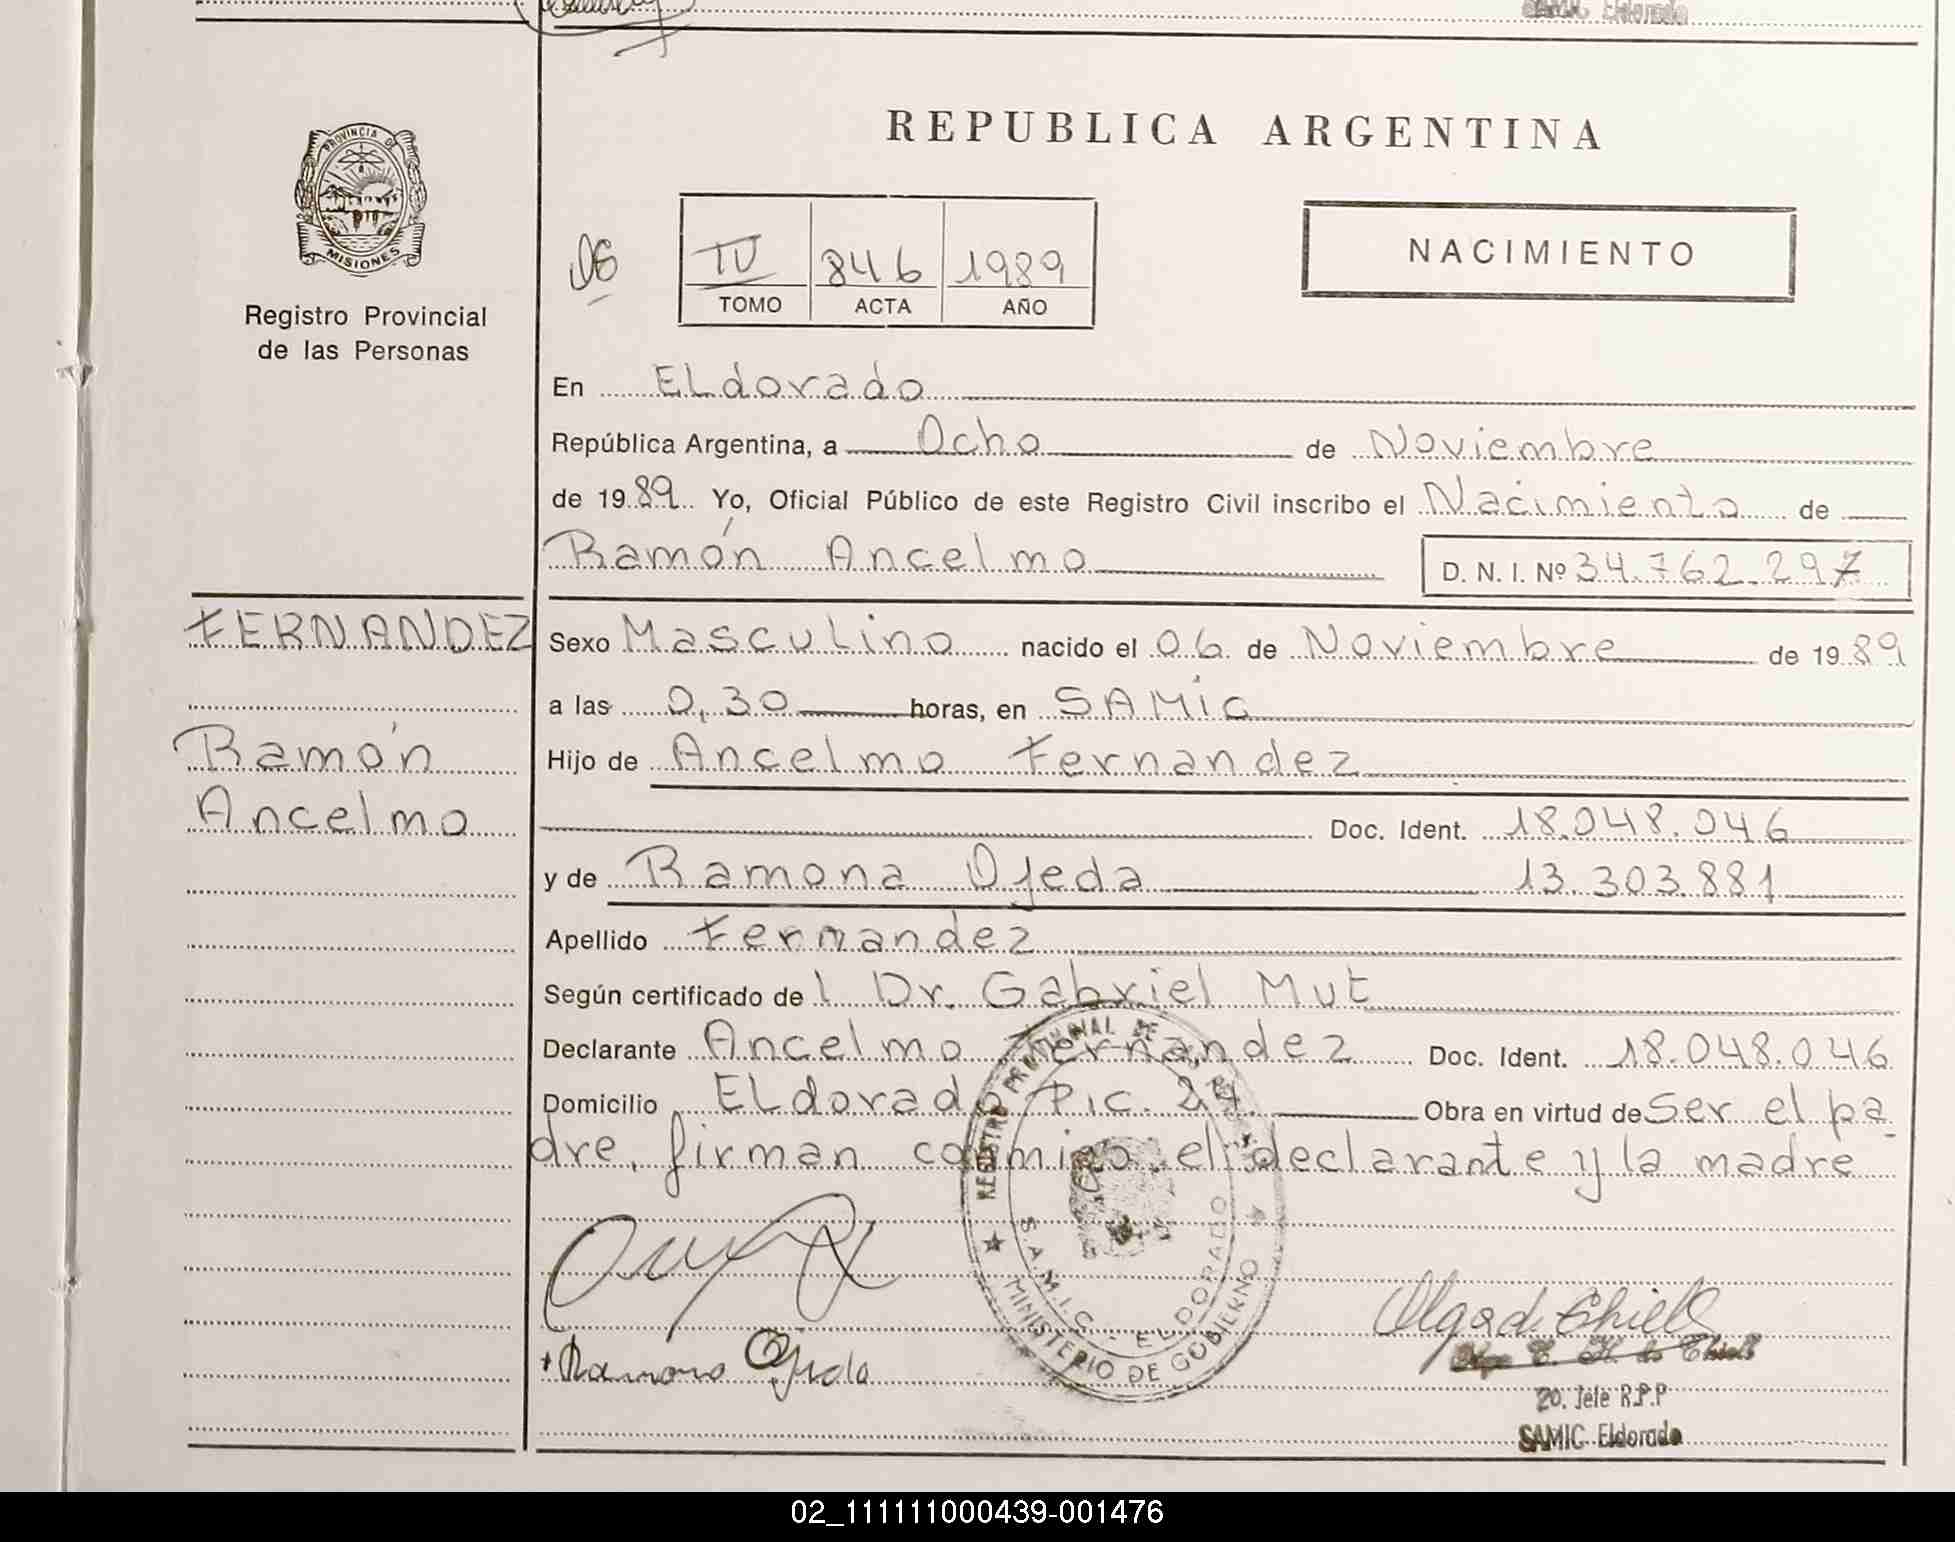 SAMIC Eldorado
REPUBLICA ARGENTINA
PROVINCIA DE
MISIONES
Registro Provincial
de las Personas
06
IV 846 1989
TOMO ACTA AÑO
NACIMIENTO
En ELdorado
República Argentina, a Ocho de Noviembre
de 1989 Yo, Oficial Público de este Registro Civil inscribo el Nacimiento de
Ramón Ancelmo D. N. I. Nº 34.762.297
FERNANDEZ
Ramón
Ancelmo
Sexo Masculino nacido el 06 de Noviembre de 1989
a las 0,30 horas, en SAMIC
Hijo de Ancelmo Fernandez
Doc. Ident. 18.048.046
y de Ramona Ojeda 13.303.881
Apellido Fernandez
Según certificado de l Dr. Gabriel Mut
Declarante Ancelmo Fernandez Doc. Ident. 18.048.046
Domicilio ELdorado Pic. 27. Obra en virtud de Ser el pa
dre, firman conmigo el declarante y la madre
REGISTRO PROVINCIAL DE
S.A.M.I.C. - ELDORADO
MINISTERIO DE GOBIERNO
Ramona Ojeda
Olga d. Chiell
20. Jefe R.P.P
SAMIC Eldorado
02_111111000439-001476